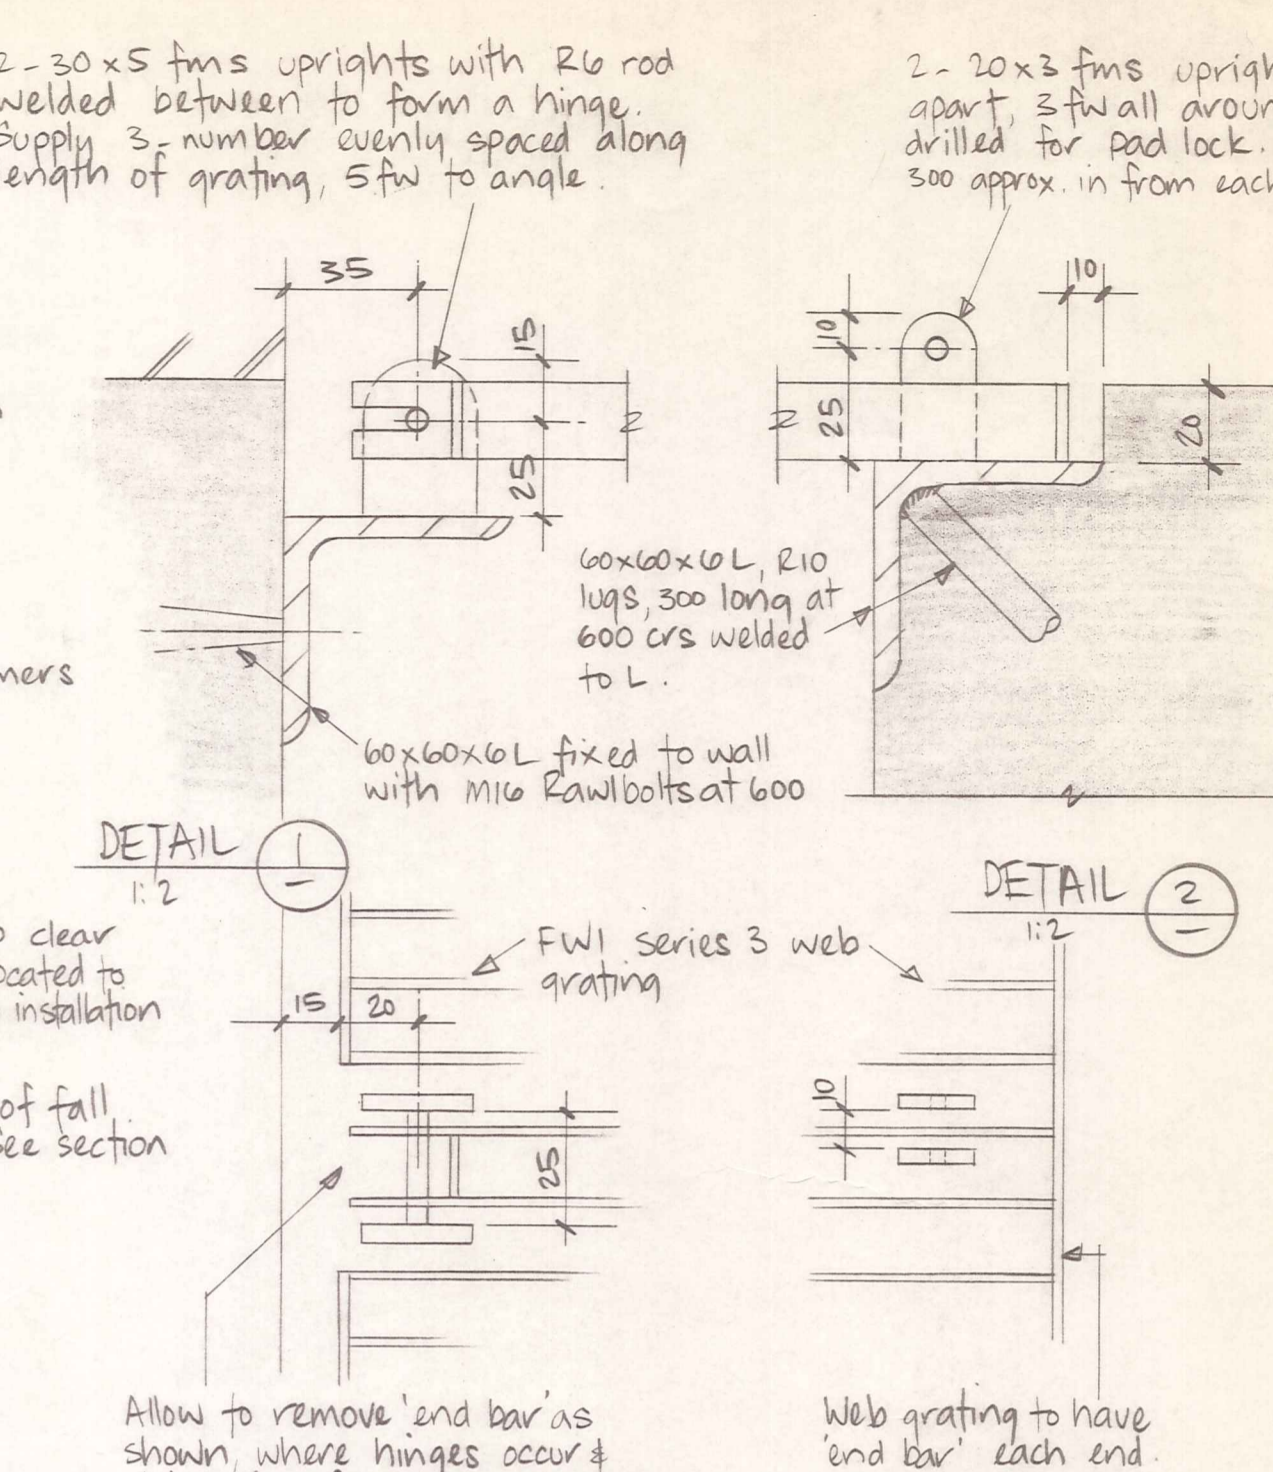 2-30x5 fms uprights with R6 rod
welded between to form a hinge.
Supply 3-number evenly spaced along
length of grating, 5fw to angle.
2- 20x3 fms uprigh
apart, 3fw all aroun
drilled for pad lock.
300 approx. in from each
35
15
25
10
25
10
20
60x60x6L, R10
lugs, 300 long at
600 crs welded
to L.
ners
60x60x6L fixed to wall
with M16 Rawlbolts at 600
DETAIL 1
1:2
DETAIL 2
1:2
clear
ocated to
installation
of fall.
see section
FW1 series 3 web
grating
15 20
25
10
Allow to remove 'end bar' as
shown, where hinges occur &
Web grating to have
'end bar' each end.